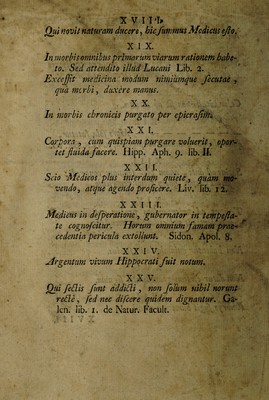 XVIII.
Qui novit naturam ducere, hic summus Medicus esto.
XIX.
In morbis omnibus primarum viarum rationem habe-
to. Sed attendito illud Lucani Lib. 2.
Excessit medicina modum nimiumque secutae,
qua morbi, duxere manus.
XX.
In morbis chronicis purgato per epicrasim.
XXI.
Corpora, cum quispiam purgare voluerit, opor-
tet fluida facere. Hipp. Aph. 9. lib. II.
XXII.
Scio Medicos plus interdum quiete, quàm mo-
vendo, atque agendo proficere. Liv. lib. 12.
XXIII.
Medicus in desperatione, gubernator in tempesta-
te cognoscitur. Horum omnium famam prae-
cedentia pericula extollunt. Sidon. Apol. 8.
XXIV.
Argentum vivum Hippocrati fuit notum.
XXV.
Qui sectis sunt addicti, non solum nihil norunt
rectè, sed nec discere quidem dignantur. Ga-
len. lib. 1. de Natur. Facult.